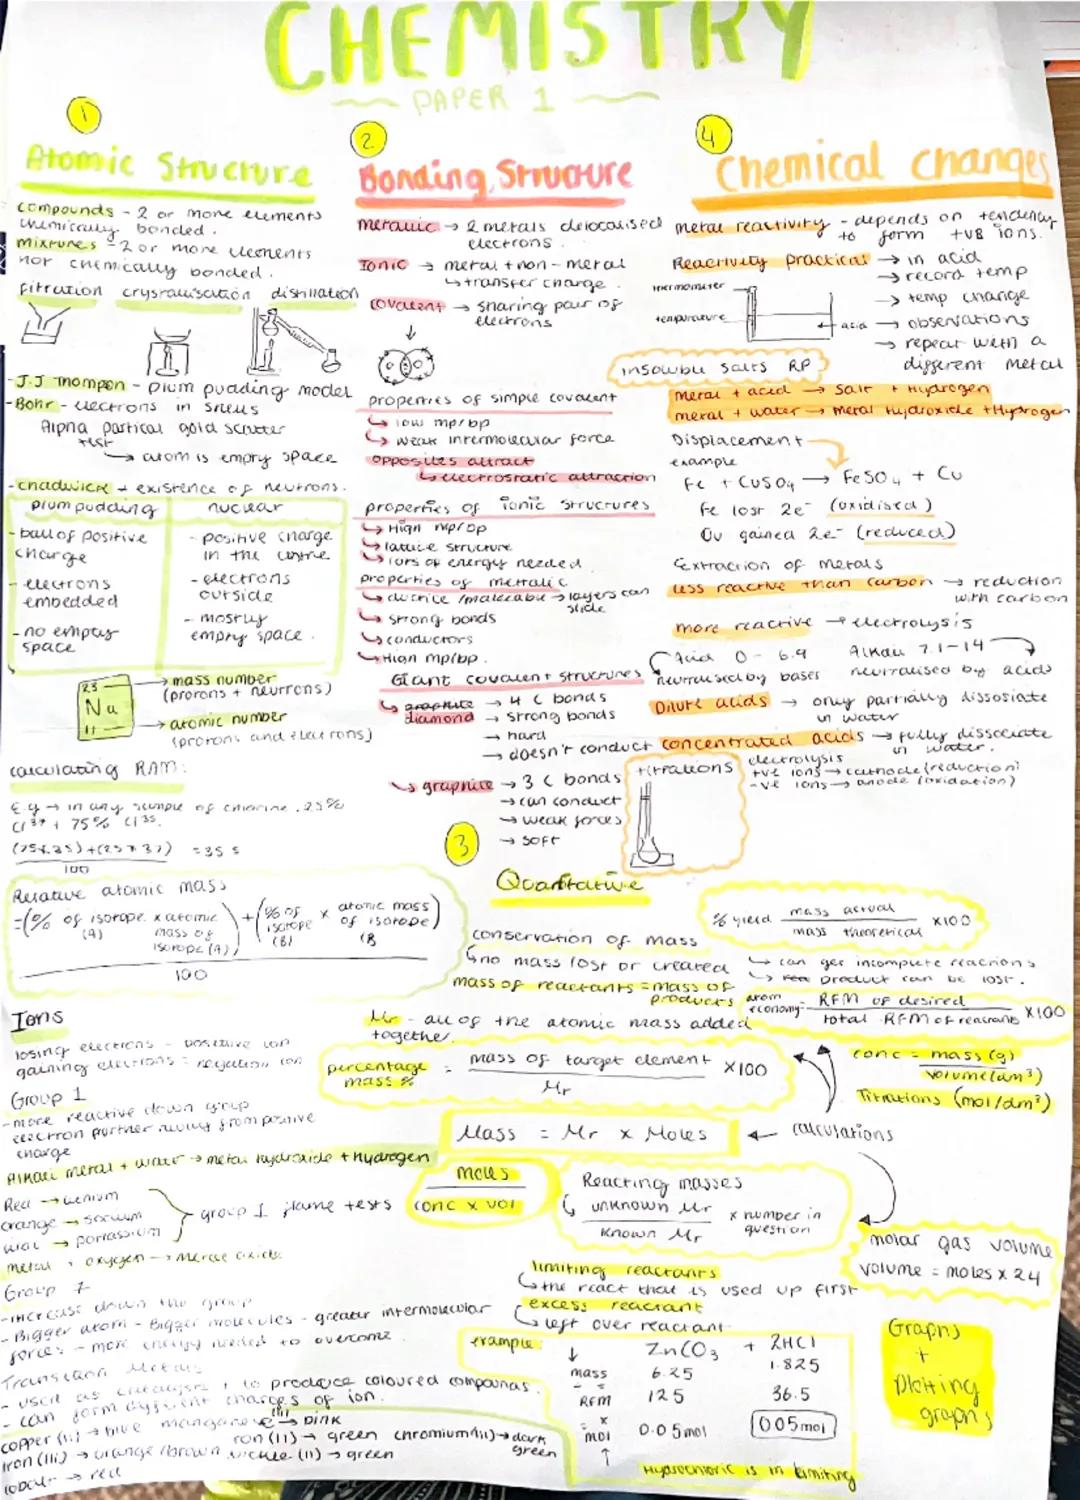 CHEMISTRY
PAPER 1
1
Atomic Structure
compounds - 2 or more elements
chemically bonded.
mixtures - 2 or more elements
not chemically bonded.
filtration crystallisation distillation
-J.J Thompson - plum pudding model
-Bohr - electrons in shells
Alpha partical gold scatter
test
→ atom is empty space
-chadwick → existence of neutrons.
plum pudding
- ball of positive
charge
- electrons
embedded
- no empty
space
nuclear
- positive charge
in the centre
- electrons
outside
- mostly
empty space.
23
Na
11
→ mass number
(protons + neutrons)
→ atomic number
(protons and electrons)
calculating RAM:
E.g → in any sample of chlorine. 25%
Cl³⁷ + 75% Cl³⁵.
(75x35)+(25x37) = 35 5
100
Relative atomic mass
=(% of isotope x atomic
(A) mass of
isotope (A))
+ (% of
isotope
(B)
x atomic mass
of isotope)
(B
100
Ions
losing electrons - positive ion
gaining electrons = negative ion
Group 1
- more reactive down group
electron further away from positive
charge
Alkali metal + water → metal hydroxide + hydrogen
Red → lithium
orange → sodium
lilac → potassium
group 1 flame tests
metal + oxygen → metal oxide
Group 7
- increase down the group
- Bigger atom - Bigger molecules - greater intermolecular
forces - more energy needed to overcome.
Transition Metals
- used as catalysts, to produce coloured compounds.
- can form different charges of ion.
copper (II) → blue manganese (II) → pink
iron (II) → green chromium (III) → dark
green
iron (III) → orange/brown nickle (II) → green
→ red
2
Bonding, Structure
metallic → 2 metals delocalised
electrons.
Ionic → metal + non-metal
↳ transfer charge.
covalent → sharing pair of
electrons
properties of simple covalent
↳ low mp/bp
↳ weak intermolecular force
opposites attract
↳ electrostatic attraction
properties of ionic structures
↳ High mp/bp
↳ lattice structure
↳ lots of energy needed
properties of metallic
↳ ductile/malleable → layers can
slide
↳ strong bonds
↳ conductors
↳ High mp/bp.
Giant covalent structures
↳ graphite
diamond → 4 C bonds
→ strong bonds
→ hard
→ doesn't conduct
↳ graphite → 3 C bonds
→ can conduct
→ weak forces
→ soft
4
Chemical changes
metal reactivity - depends on tendency
to form +ve ions.
Reactivity practical → in acid
→ record temp
→ temp change
→ observations
→ repeat with a
different metal
thermometer
temperature
acid
insoluble salts RP
metal + acid → salt + Hydrogen
metal + water → Metal Hydroxide + Hydrogen
Displacement
example
Fe + CuSO₄ → FeSO₄ + Cu
Fe lost 2e⁻ (oxidised)
Cu gained 2e⁻ (reduced)
Extraction of metals
less reactive than carbon → reduction
with carbon
more reactive → electrolysis
Acid 0 - 6.9
neutralised by bases
Alkali 7.1-14
neutralised by acids
Dilute acids → only partially dissosiate
in water
concentrated acids → fully dissociate
in water.
titrations
electrolysis
+ve ions → cathode (reduction)
-ve ions → anode (oxidation)
3
Quantitative
conservation of mass
↳ no mass lost or created
mass of reactants = mass of
products
% yield mass actual x100
mass theoretical
↳ can get incomplete reactions
↳ product can be lost.
atom
economy = RFM of desired x100
total RFM of reactants
Mr - all of the atomic mass added
together.
percentage
mass % = mass of target element x100
Mr
conc = mass (g)
volume (dm³)
Titrations (mol/dm³)
Mass = Mr x Moles
← calculations
moles
conc x vol
Reacting masses
↳ unknown Mr x number in
known Mr question
molar gas volume
volume = moles x 24
limiting reactants
↳ the react that is used up first
excess reactant
↳ left over reactant.
example:
ZnCO₃ + 2HCl
mass 6.25 1.825
RFM 125 36.5
mol 0.05mol 0.05mol
Hydrochloric is in limiting
Graphs
+
Plotting
graphs